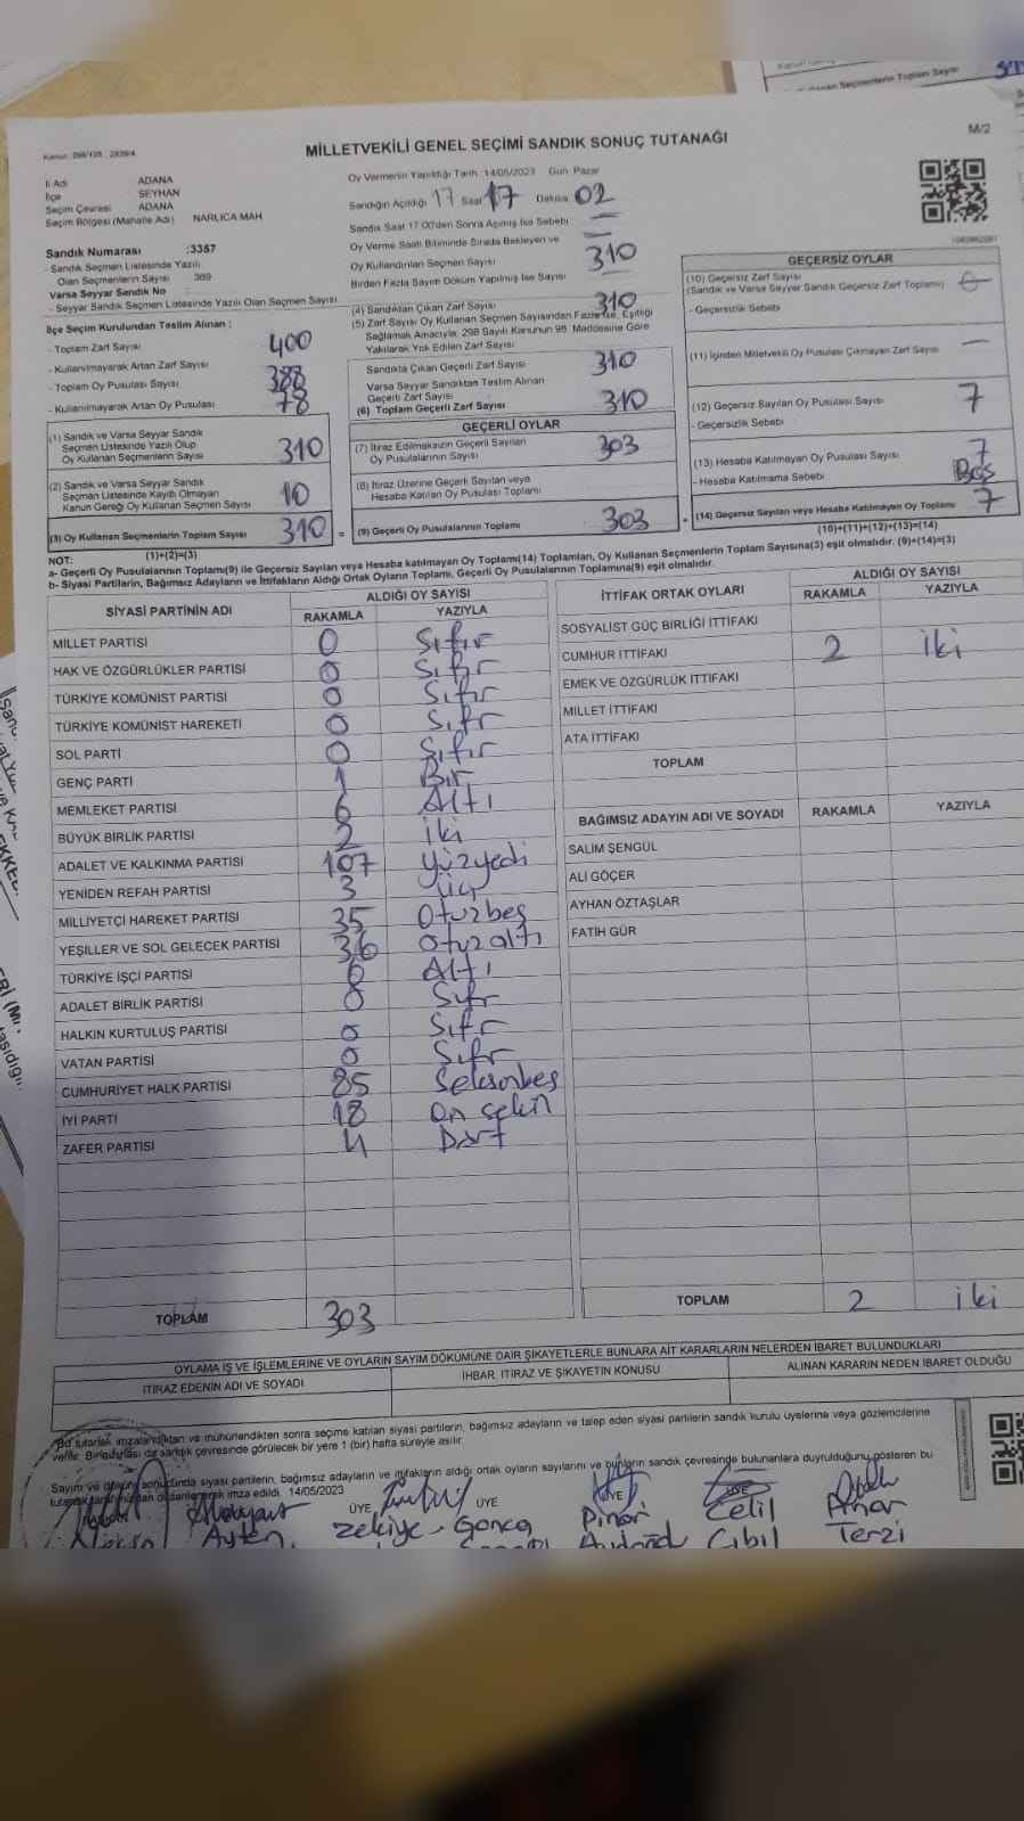 MİLLETVEKİLİ GENEL SEÇİMİ SANDIK SONUÇ TUTANAĞI
M/2
İl Adı ADANA
İlçe SEYHAN
Seçim Çevresi ADANA
Seçim Bölgesi (Mahalle Adı) NARLICA MAH
Sandık Numarası :3357
- Sandık Seçmen Listesinde Yazılı
Olan Seçmenlerin Sayısı 369
Varsa Seyyar Sandık No
- Seyyar Sandık Seçmen Listesinde Yazılı Olan Seçmen Sayısı
Oy Vermenin Yapıldığı Tarih :14/05/2023 Gün: Pazar
Sandığın Açıldığı 17 Saat 17 Dakika 02
Sandık Saat 17.00'den Sonra Açılmış İse Sebebi
Oy Verme Saati Bitiminde Sırada Bekleyen ve
Oy Kullandırılan Seçmen Sayısı 310
Birden Fazla Sayım Döküm Yapılmış İse Sayısı
İlçe Seçim Kurulundan Teslim Alınan :
- Toplam Zarf Sayısı 400
- Kullanılmayarak Artan Zarf Sayısı
- Toplam Oy Pusulası Sayısı 388
- Kullanılmayarak Artan Oy Pusulası 78
(1) Sandık ve Varsa Seyyar Sandık
Seçmen Listesinde Yazılı Olup
Oy Kullanan Seçmenlerin Sayısı 310
(2) Sandık ve Varsa Seyyar Sandık
Seçmen Listesinde Kayıtlı Olmayan
Kanun Gereği Oy Kullanan Seçmen Sayısı 10
(3) Oy Kullanan Seçmenlerin Toplam Sayısı 310
(1)+(2)=(3)
(4) Sandıktan Çıkan Zarf Sayısı 310
(5) Zarf Sayısı Oy Kullanan Seçmen Sayısından Fazla ise, Eşitliği
Sağlamak Amacıyla, 298 Sayılı Kanunun 98. Maddesine Göre
Yakılarak Yok Edilen Zarf Sayısı
Sandıkta Çıkan Geçerli Zarf Sayısı 310
Varsa Seyyar Sandıktan Teslim Alınan
Geçerli Zarf Sayısı
(6) Toplam Geçerli Zarf Sayısı 310
GEÇERLİ OYLAR
(7) İtiraz Edilmeksizin Geçerli Sayılan
Oy Pusulalarının Sayısı 303
(8) İtiraz Üzerine Geçerli Sayılan veya
Hesaba Katılan Oy Pusulası Toplamı
= (9) Geçerli Oy Pusulalarının Toplamı 303
GEÇERSİZ OYLAR
(10) Geçersiz Zarf Sayısı
(Sandık ve Varsa Seyyar Sandık Geçersiz Zarf Toplamı)
- Geçersizlik Sebebi
(11) İçinden Milletvekili Oy Pusulası Çıkmayan Zarf Sayısı —
(12) Geçersiz Sayılan Oy Pusulası Sayısı 7
- Geçersizlik Sebebi
(13) Hesaba Katılmayan Oy Pusulası Sayısı 7
- Hesaba Katılmama Sebebi Boş
(14) Geçersiz Sayılan veya Hesaba Katılmayan Oy Toplamı 7
(10)+(11)+(12)+(13)=(14)
NOT:
a- Geçerli Oy Pusulalarının Toplamı(9) ile Geçersiz Sayılan veya Hesaba katılmayan Oy Toplamı(14) Toplamları, Oy Kullanan Seçmenlerin Toplam Sayısına(3) eşit olmalıdır. (9)+(14)=(3)
b- Siyasi Partilerin, Bağımsız Adayların ve İttifakların Aldığı Ortak Oyların Toplamı, Geçerli Oy Pusulalarının Toplamına(9) eşit olmalıdır.
SİYASİ PARTİNİN ADI ALDIĞI OY SAYISI
RAKAMLA YAZIYLA
MİLLET PARTİSİ 0 Sıfır
HAK VE ÖZGÜRLÜKLER PARTİSİ 0 Sıfır
TÜRKİYE KOMÜNİST PARTİSİ 0 Sıfır
TÜRKİYE KOMÜNİST HAREKETİ 0 Sıfr
SOL PARTİ 0 Sıfır
GENÇ PARTİ 1 Bir
MEMLEKET PARTİSİ 6 Altı
BÜYÜK BİRLİK PARTİSİ 2 iki
ADALET VE KALKINMA PARTİSİ 107 yüzyedi
YENİDEN REFAH PARTİSİ 3 üç
MİLLİYETÇİ HAREKET PARTİSİ 35 Otuzbeş
YEŞİLLER VE SOL GELECEK PARTİSİ 36 otuzaltı
TÜRKİYE İŞÇİ PARTİSİ 6 Altı
ADALET BİRLİK PARTİSİ 0 Sıfr
HALKIN KURTULUŞ PARTİSİ 0 Sıfr
VATAN PARTİSİ 0 Sıfr
CUMHURİYET HALK PARTİSİ 85 Seksenbeş
İYİ PARTİ 18 on sekiz
ZAFER PARTİSİ 4 Dört
TOPLAM 303
İTTİFAK ORTAK OYLARI ALDIĞI OY SAYISI
RAKAMLA YAZIYLA
SOSYALİST GÜÇ BİRLİĞİ İTTİFAKI
CUMHUR İTTİFAKI 2 iki
EMEK VE ÖZGÜRLÜK İTTİFAKI
MİLLET İTTİFAKI
ATA İTTİFAKI
TOPLAM
BAĞIMSIZ ADAYIN ADI VE SOYADI RAKAMLA YAZIYLA
SALİM ŞENGÜL
ALİ GÖÇER
AYHAN ÖZTAŞLAR
FATİH GÜR
TOPLAM 2 iki
OYLAMA İŞ VE İŞLEMLERİNE VE OYLARIN SAYIM DÖKÜMÜNE DAİR ŞİKAYETLERLE BUNLARA AİT KARARLARIN NELERDEN İBARET BULUNDUKLARI
İTİRAZ EDENİN ADI VE SOYADI İHBAR, İTİRAZ VE ŞİKAYETİN KONUSU ALINAN KARARIN NEDEN İBARET OLDUĞU
Bu tutanak imzalandıktan ve mühürlendikten sonra seçime katılan siyasi partilerin, bağımsız adayların ve talep eden siyasi partilerin sandık kurulu üyelerine veya gözlemcilerine
verilir. Bir sandık çevresinde görülecek bir yere 1 (bir) hafta süreyle asılır.
Sayım ve döküm sonucunda siyasi partilerin, bağımsız adayların ve ittifakların aldığı ortak oyların sayılarını ve bunların sandık çevresinde bulunanlara duyrulduğunu gösteren bu
düzenlenerek imza edildi. 14/05/2023
ÜYE ÜYE
Ayten Zekiye Gonca Pınar Celil Anar
Cıbıl Terzi